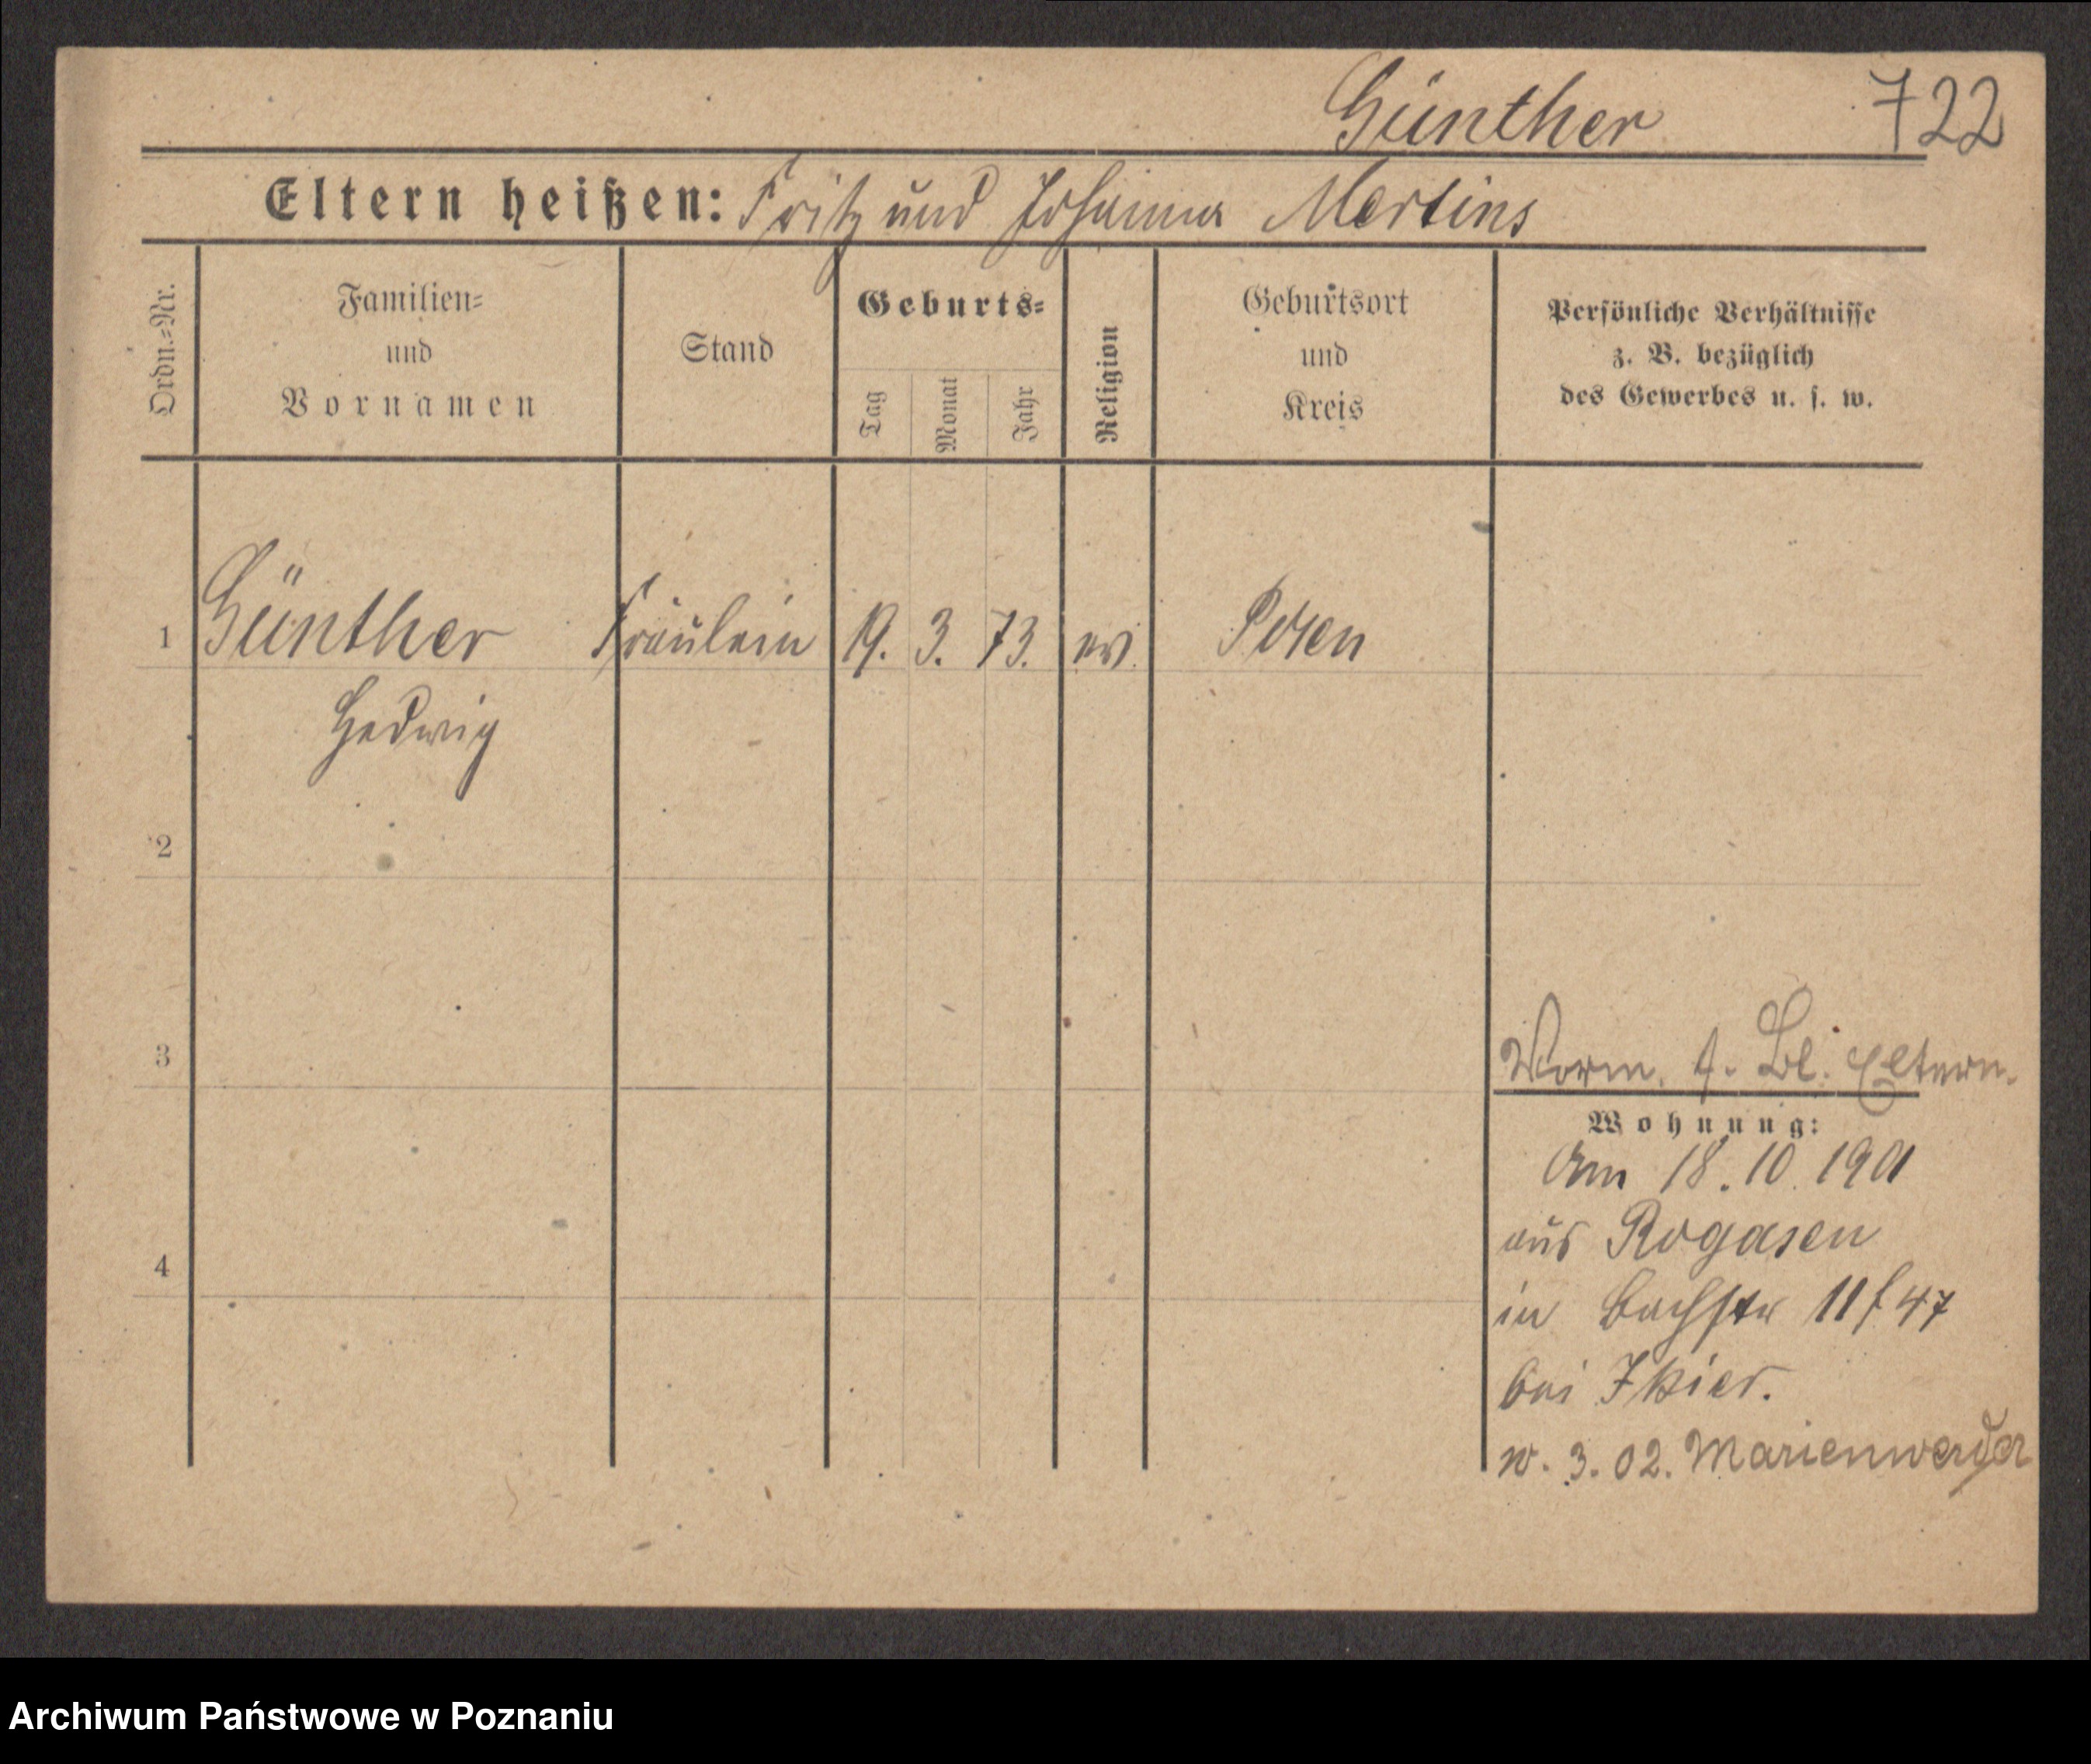 Günther 722
Eltern heißen: Fritz und Johanna Mertins
Ordn.=Nr.
Familien=
und
Vornamen
Stand
Geburts=
Tag
Monat
Jahr
Religion
Geburtsort
und
Kreis
Persönliche Verhältnisse
z. B. bezüglich
des Gewerbes u. s. w.
1 Günther Fräulein 19. 3. 73. ev. Posen
Hedwig
2
3
Vorm. f. Bl. Eltern.
Wohnung:
4
Am 18.10.1901
aus Rogasen
in Bachstr 11 f 47
bei
w. 3. 02. Marienwerder
Archiwum Państwowe w Poznaniu